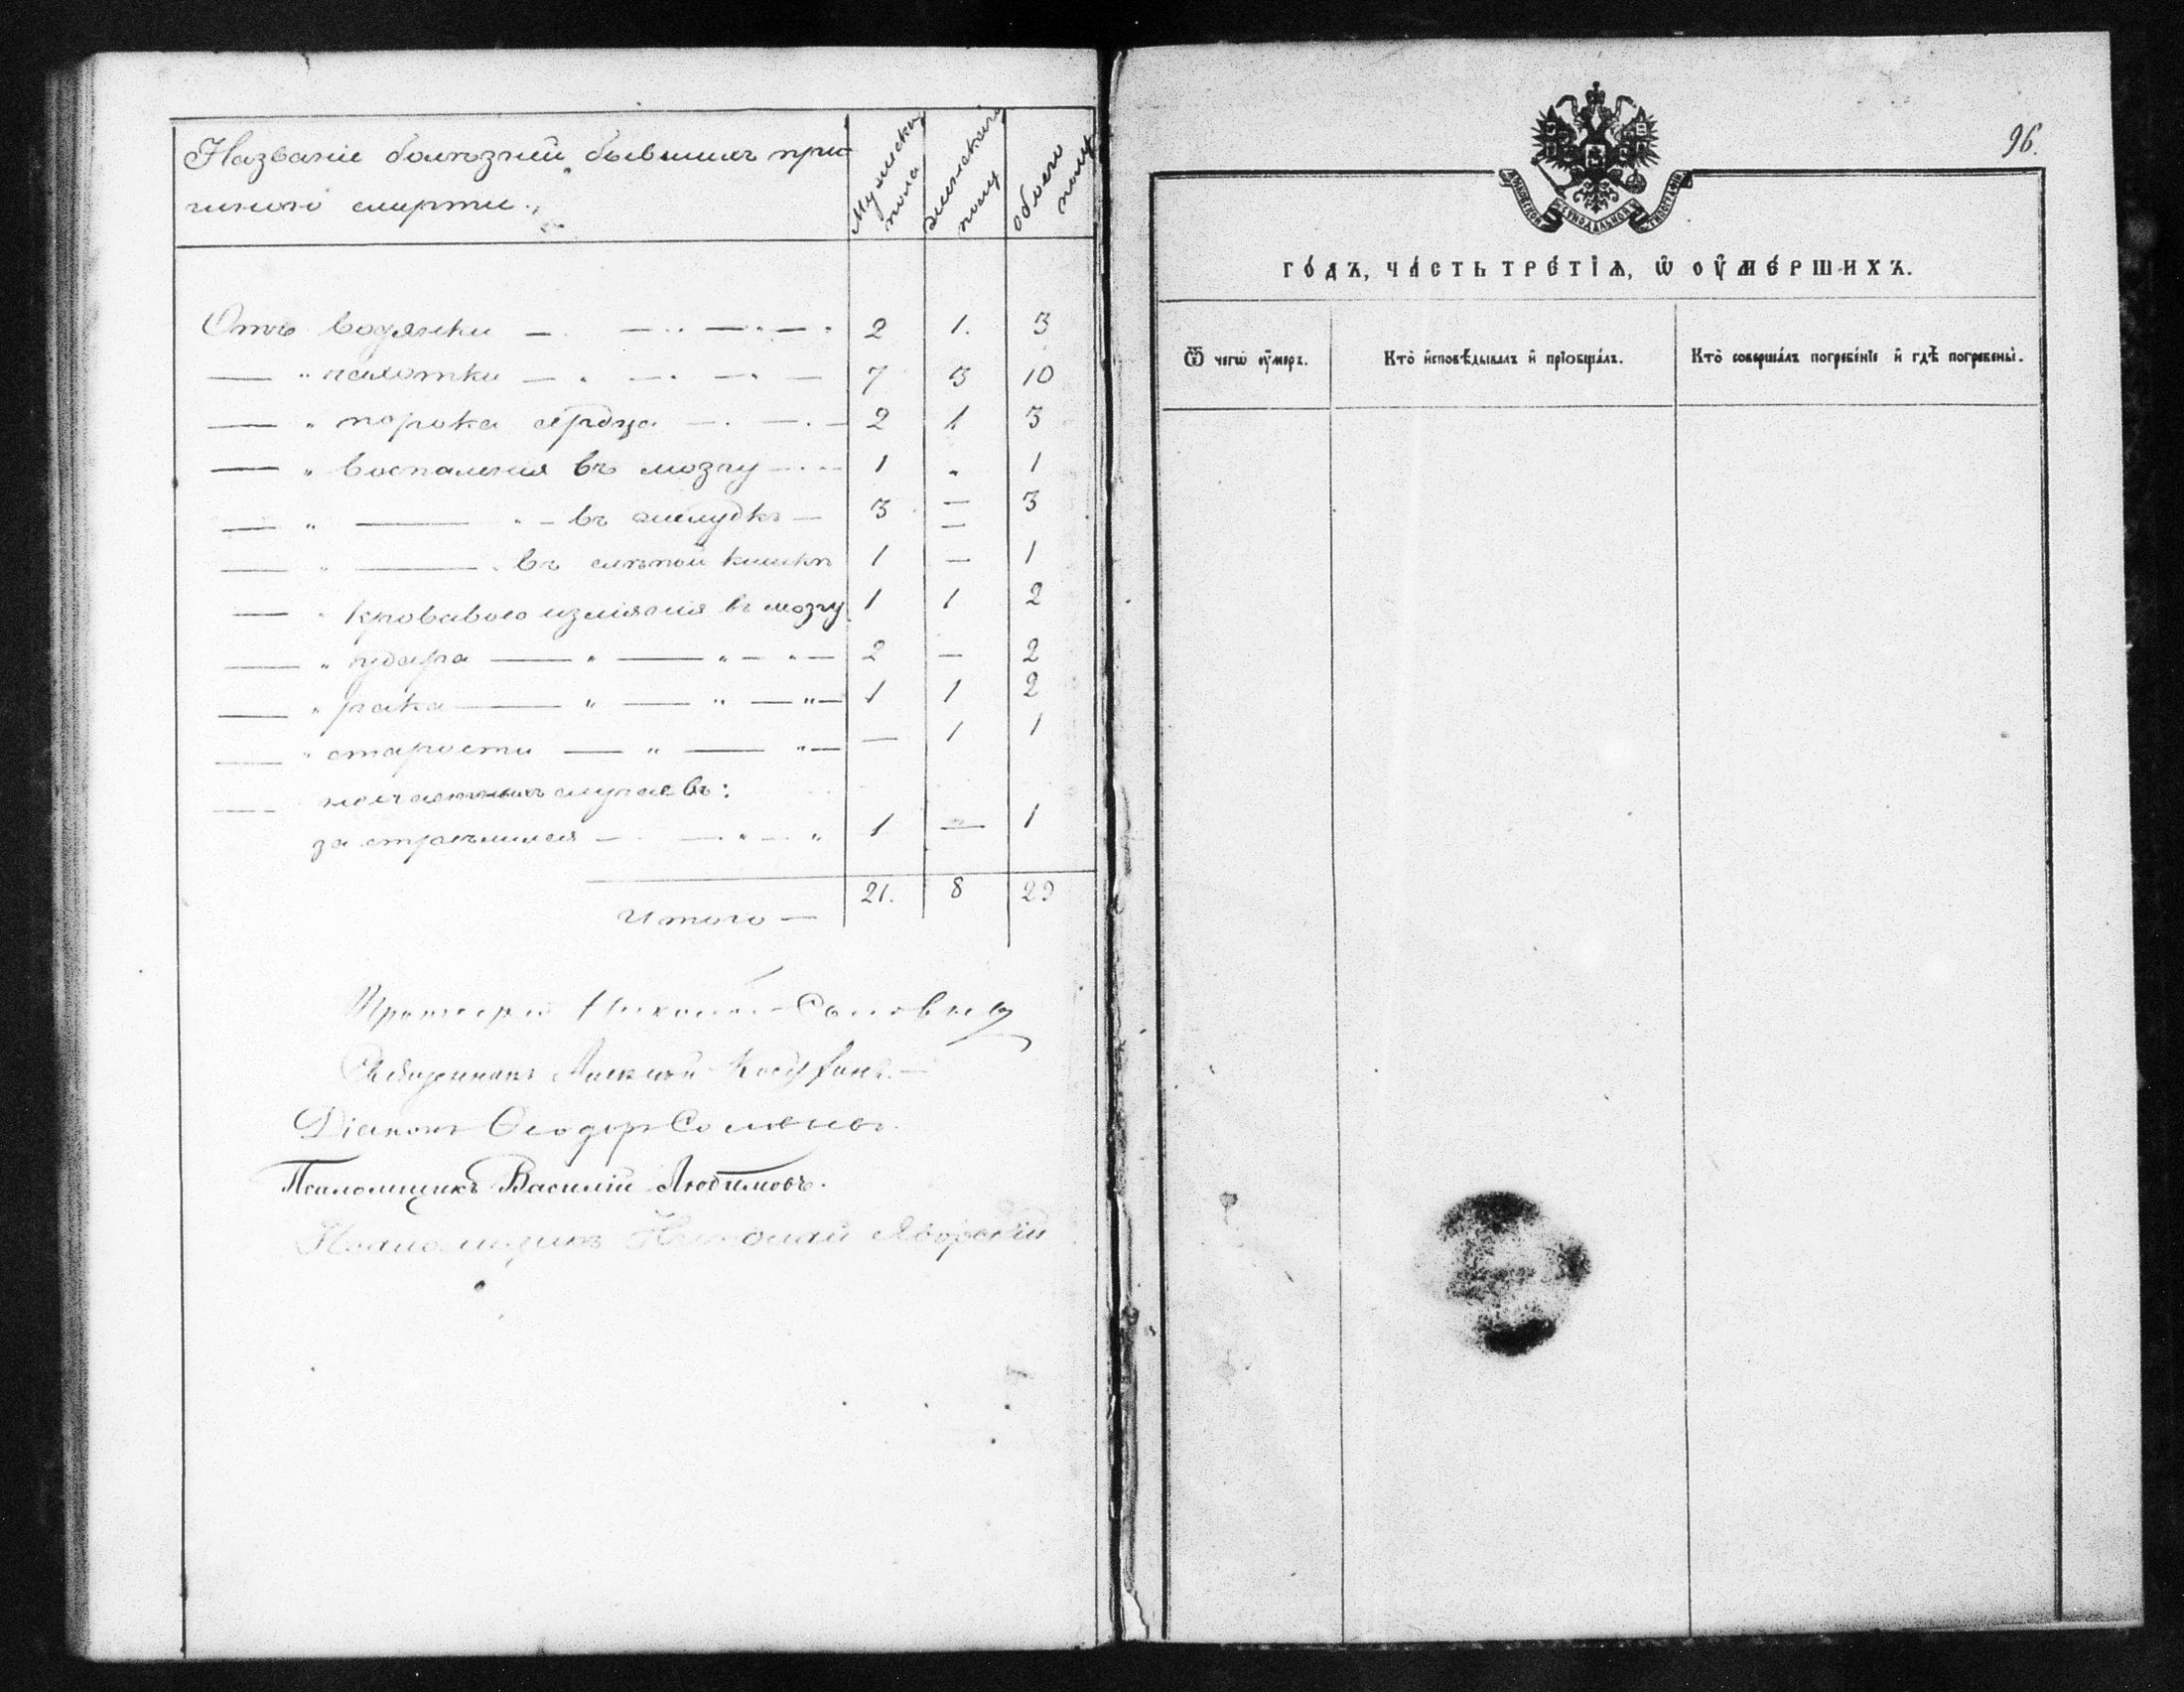 Названіе болѣзней бывшихъ при-
чиною смерти.
Мужска
пола
женскаго
полу
обоего
полу
Отъ водянки — . — . . — . — . 2 1. 3
— " чахотки — . — . — . — 7 3 10
— " порока сердца — . — . — 2 1 3
— " воспаленія въ мозгу — . . — 1 " 1
— " — " — въ желудкѣ — 3 — 3
— " — . въ слѣпой кишкѣ 1 — 1
— " Кроваваго изліянія въ мозгу 1 1 2
— " удара — " — " — " — 2 — 2
— " рака — " — " — " — 1 1 2
— " старости — " — " — — 1 1
— несчастныхъ случаевъ:
застрѣлился — . — . " — " 1 — 1
Итого — 21. 8 29
Протоіерей Николай Соловьев
Священникъ Алексѣй
Діаконъ Ѳеодоръ Соловьевъ.
Псаломщикъ Василій Любимовъ.
Псаломщикъ Николай Яворскій
96.
МОСКОВСКОЙ СѴНОДАЛЬНОЙ ТИПОГРАФІИ
ГО́ДЪ, ЧА́СТЬ ТРЕ́ТІѦ, Ѡ҆ ОУ҆МЕ́РШИХЪ.
Ѿ чегѡ̀ оу҆́меръ.
Кто̀ и҆сповѣ́дывалъ и҆ прїѡбща́лъ.
Кто̀ соверша́лъ погребе́нїе и҆ гдѣ̀ погребены̀.